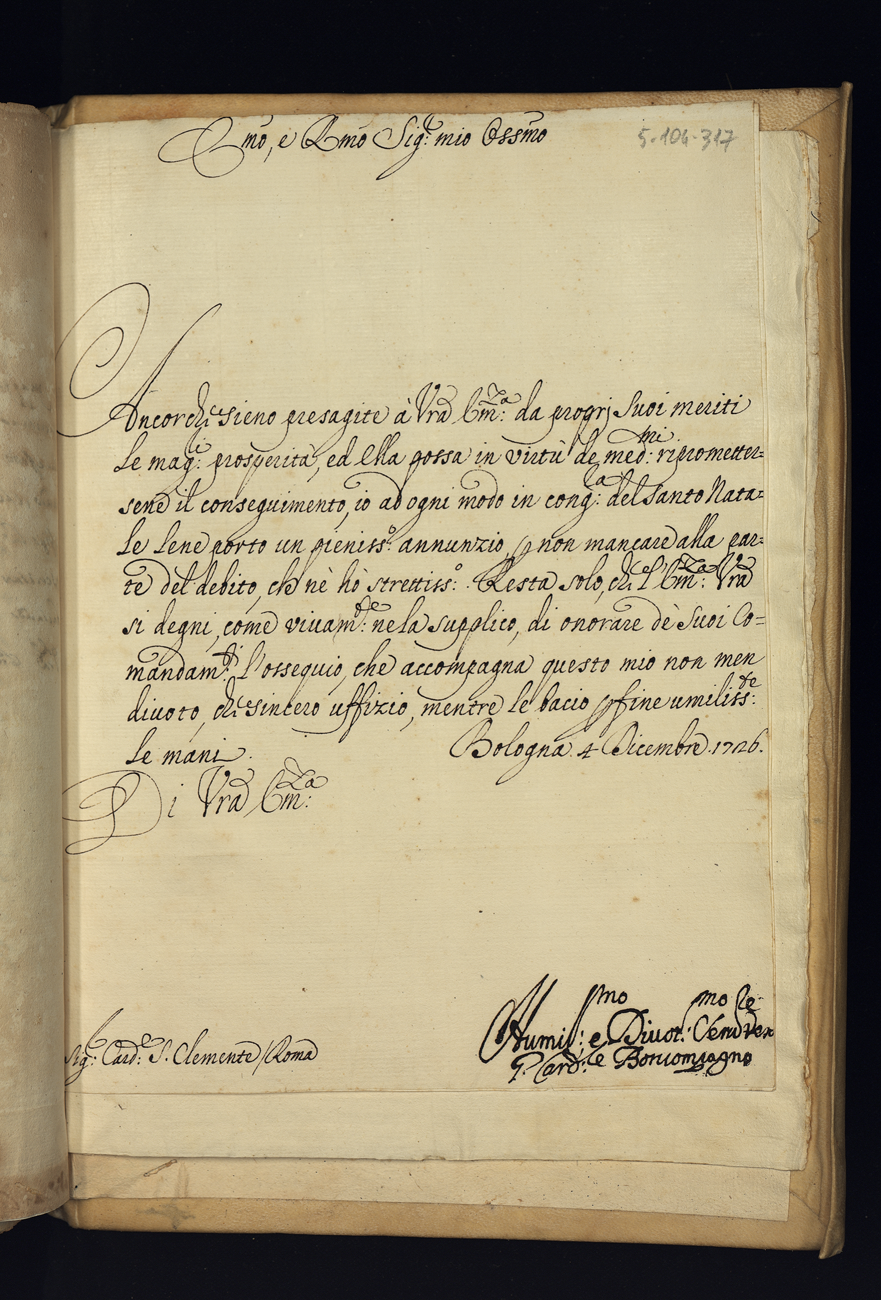 Emo, e Rmo Sig.r mio Ossmo
5-104-317
Ancorchè sieno presagite à Vra Em.za da proprj suoi meriti
le mag.i prosperità, ed Ella possa in virtù de med.mi riprometter=
sene il conseguimento, io ad ogni modo in cong.a del Santo Nata=
le lene porto un pieniss.o annunzio, p non mancare alla par=
te del debito, che nè hò strettiss.o. Resta solo, che l'Em.za Vra
si degni, come vivam.te nela supplico, di onorare dè suoi Co=
mandam.ti l'ossequio, che accompagna questo mio non men
divoto, che sincero uffizio, mentre le bacio p fine umiliss.te
le mani.
Bologna 4 Dicembre 1726.
Di Vra Em.za
Sig.r Card.e S. Clemente / Roma
Humiliss.mo e Divot.mo Serv.re vero
Card.le Boncompagno